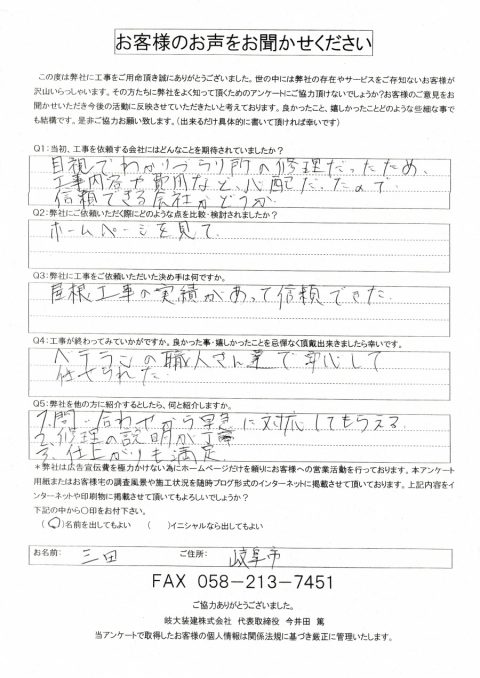 お客様のお声をお聞かせください
この度は弊社に工事をご用命頂き誠にありがとうございました。世の中には弊社の存在やサービスをご存知ないお客様が
沢山いらっしゃいます。その方たちに弊社をよく知って頂くためのアンケートにご協力頂けないでしょうか?お客様のご意見をお
聞かせいただき今後の活動に反映させていただきたいと考えております。良かったこと、嬉しかったことどのような些細な事で
も結構です。是非ご協力お願い致します。(出来るだけ具体的に書いて頂ければ幸いです)
Q1:当初、工事を依頼する会社にはどんなことを期待されていましたか?
目視でわかりづらい所の修理だったため、
工事内容や費用など、心配だったので
信頼できる会社かどうか
Q2:弊社にご依頼いただく際にどのような点を比較・検討されましたか?
ホームページを見て
Q3:弊社に工事をご依頼いただいた決め手は何ですか。
屋根工事の実績があって信頼できた
Q4:工事が終わってみていかがですか。良かった事・嬉しかったことを忌憚なく頂戴出来きましたら幸いです。
ベテランの職人さん達で安心して
任せられた
Q5:弊社を他の方に紹介するとしたら、何と紹介しますか。
1.問い合わせから早急に対応してもらえる
2.修理の説明が丁寧
3.仕上がりも満足
*弊社は広告宣伝費を極力かけない為にホームページだけを頼りにお客様への営業活動を行っております。本アンケート
用紙またはお客様宅の調査風景や施工状況を随時ブログ形式のインターネットに掲載させて頂いております。上記内容をイ
ンターネットや印刷物に掲載させて頂いてもよろしいでしょうか?
下記の中から〇印をお付下さい。
(〇)名前を出してもよい ( )イニシャルなら出してもよい
お名前: 三田 ご住所: 岐阜市
FAX 058-213-7451
ご協力ありがとうございました。
岐大装建株式会社 代表取締役 今井田 篤
当アンケートで取得したお客様の個人情報は関係法規に基づき厳正に管理いたします。